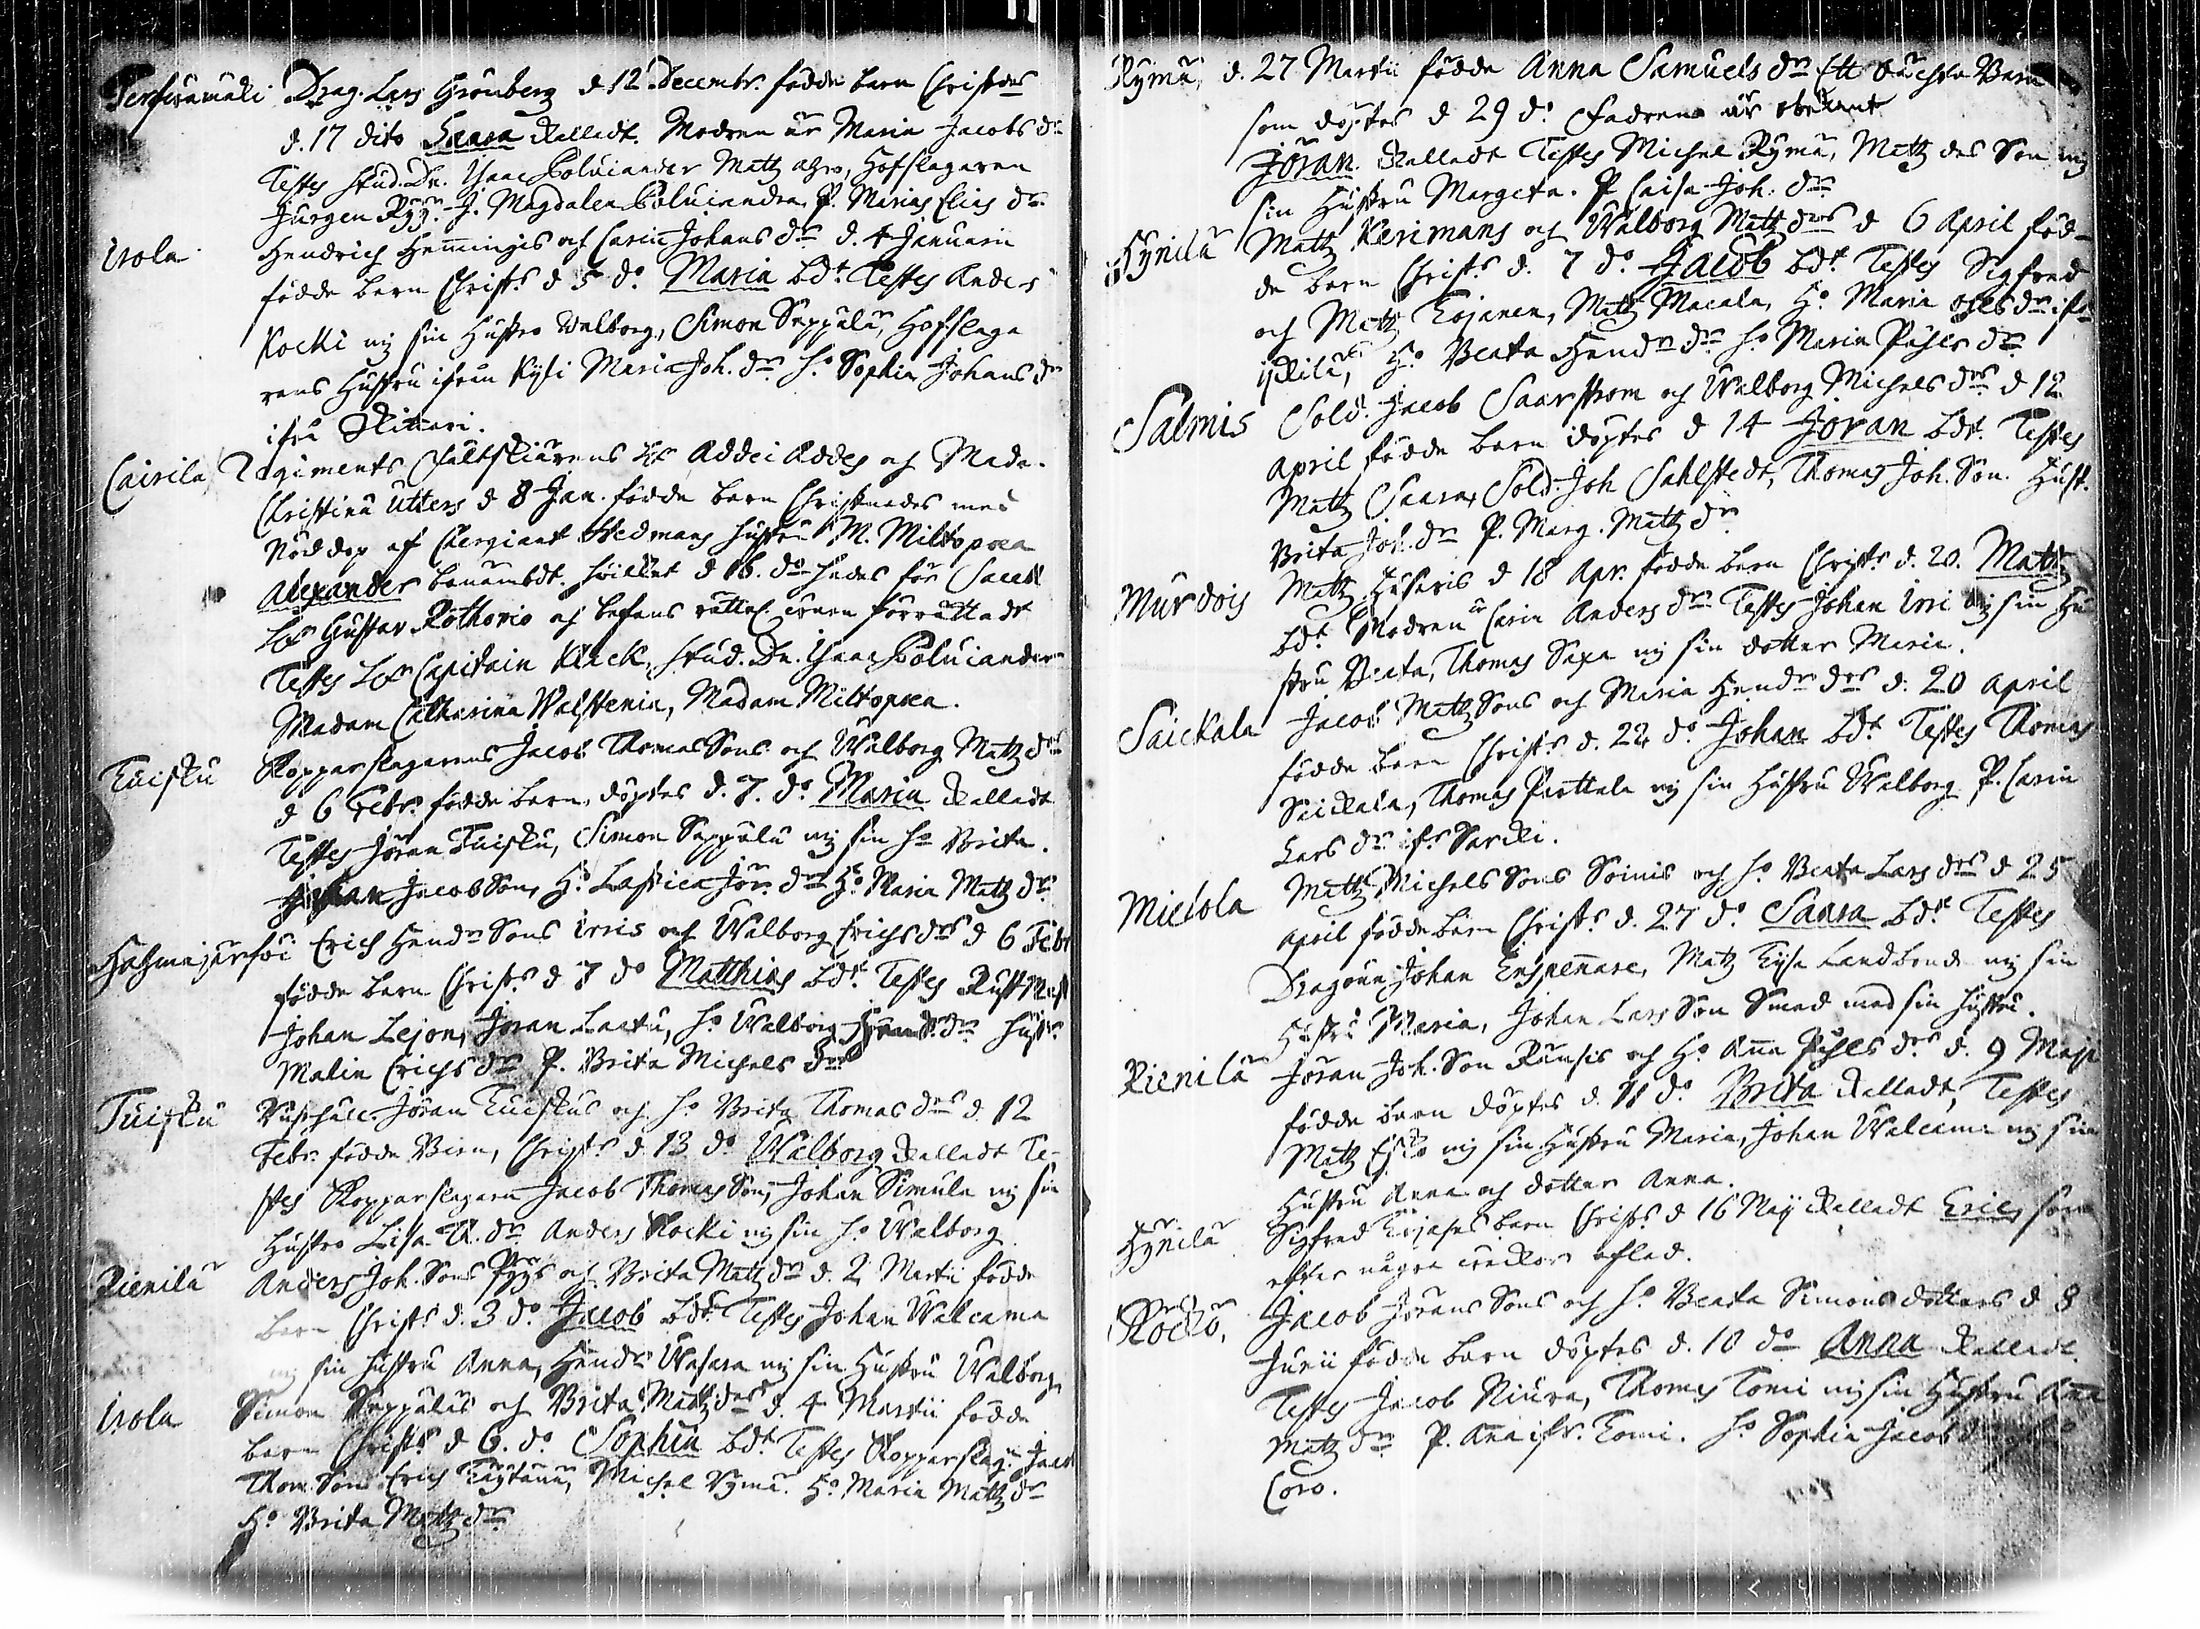 Drag. Lars Grönberg d 12 Decembr. födde barn Christnes
d. 17 dito Saara Kalladt. Modren är Maria Jacobs dr
Testes stud. Dn. Isaac Polviander Matz Hofslagaren
Jurgen J. Magdalena Polviandra, P. Maria Elias dr
Isola Hendrich Henningis och Carin Johans dr d. 4 Januarii
födde barn Christs d 5 do Maria bdt Testes Anders
Kocki mz sin Hustro Walborg, Simon Seppälä, Hofslaga
rens Hustru ifrån Kysi Maria Joh. dr ho Sophia Johans dr
ifrå
Cairila Regiments Fältskiärens Hr Addei Addes och Mada.
Christina Utters d 8 Jan. födde barn Christnades med
Nöddop af Sergiant Hedmans hustru M. Miltopoea
Alexander benämbdt. hvilket d 16. do
Hr Gustav Rothovio och befans rätteligen förrättadt
Testes Hr Capitain Klick, stud. Dn. Isaac Polviander
Madam Catharina Walstenia, Madam Miltopoea.
Tuisku Kopparslagarens Jacob Thomas Sons och Walborg Matz drs
d 6 Febr. födde barn, döptes d. 7. do Maria Kalladt
Testes Jöran Tuisku, Simon Seppälä mz sin ho Brita.
Johan Jacob Son, Ho Jör. dr Ho Maria Matz dr
Hahmajärfvi Erich Hendr Sons Irris och Walborg Erichs drs d 6 Febr
födde barn Christs d 7 do Matthias bdt Testes Rust Mest
Johan Lejon, Jöran Laetu, ho Walborg dr hustr.
Malin Erichs dr P. Brita Michels dr
Tuisku Jöran Tuiskus och ho Brita Thomas drs d 12
Febr. födde Barn, Christs d 13 do Walborg Kalladt Te-
stes Kopparslagaren Jacob Thomas Son, Johan Simula mz sin
Hustro Lisa dr Anders Kocki mz sin ho Walborg
Rienilä Anders Joh. Sons och Brita Matz dr d. 2 Martii födde
barn Christs d. 3 do Jacob bdt Testes Johan Walcama
mz sin hustru Anna, Hendr Wasara mz sin Hustru Walborg
Isola Simon Seppäläs och Brita Matz drs d. 4 Martii födde
barn Christs d 6. do Sophia bdt Testes Kopparslag. Jacob
Thom. Son Erich Michel Ho Maria Matz dr
Ho Brita Matz dr
Rymä, d. 27 Martii födde Anna Samuels dr Ett oächta Barn
som döptes d 29 do Fadren är obekant
Jöran Kalladt Testes Michel Rymä, Matz des Son mz
sin Hustru Margeta. P. Caisa Joh. dr
Hynilä Matz Kerimans och Walborg Matz drs d 6 April föd-
de barn Christs d. 7 do Jacob bdt Testes Sigfred
och Matz Tojanen, Matz Macala, Ho Maria dr ifr
Ho Beata Hendr dr ho Maria Påhls dr
Salmis Sold. Jacob Saarstrom och Walborg Michels drs d 12
April födde barn döptes d 14 Jöran bdt. Testes
Matz Saara, Sold. Joh Sahlstedt, Thomas Joh. Son. Hust.
Brita Joh. dr P. Marg. Matz dr
Murdois Matz Husaris d 18 Apr. födde barn Christs d. 20. Matz
bdt Modren är Carin Anders dr Testes Johan Irri mz sin Hu
stru Beata, Thomas Saxa mz sin dotter Maria.
Saickala Jacob Matz Sons och Maria Hendr drs d. 20 April
födde barn Christs d. 22 do Johan bdt Testes Thomas
Saickala, Thomas Prottala mz sin Hustru Walborg P. Carin
Lars dr ifr
Mielola Matz Michels Sons Soinis och ho Beata Lars drs d 25
April födde barn Christs d. 27 do Saara bdt Testes
Dragoun Johan Enspennare, Matz Landbonde mz sin
Hustru Maria, Johan Lars Son Smed med sin hustru.
Rienilä Jöran Joh. Son och Ho Anna Påhls drs d. 9 Maji
födde barn döptes d. 11 do Brita Kalladt, Testes
Matz mz sin Hustru Maria, Johan Walcama mz sin
Hustru Anna och dotter Anna.
Hynilä Sigfred barn Christs d 16 Maij Kalladt Eric, som
efter några veckor afled.
Rockö, Jacob Jörans Sons och ho Beata Simons dotters d 8
Junii födde barn döptes d. 10 do Anna Kalladt
Testes Jacob Niura, Thomas Tomi mz sin Hustru Anna
Matz dr P. Anna ifr. Tomi. ho Sophia Jacobs dr
Coro.